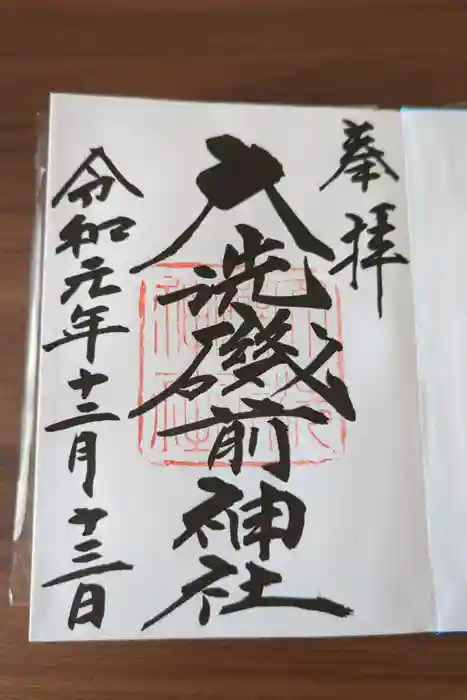 奉拝
大洗磯前神社
令和元年十二月十三日